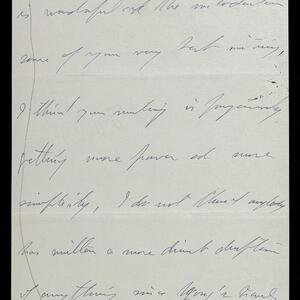 is wonderful and the introduction
some of your very best writing,
I think your writing is
getting more power and more
simplicity, I do not think anybody
has written a more direct
of anything since